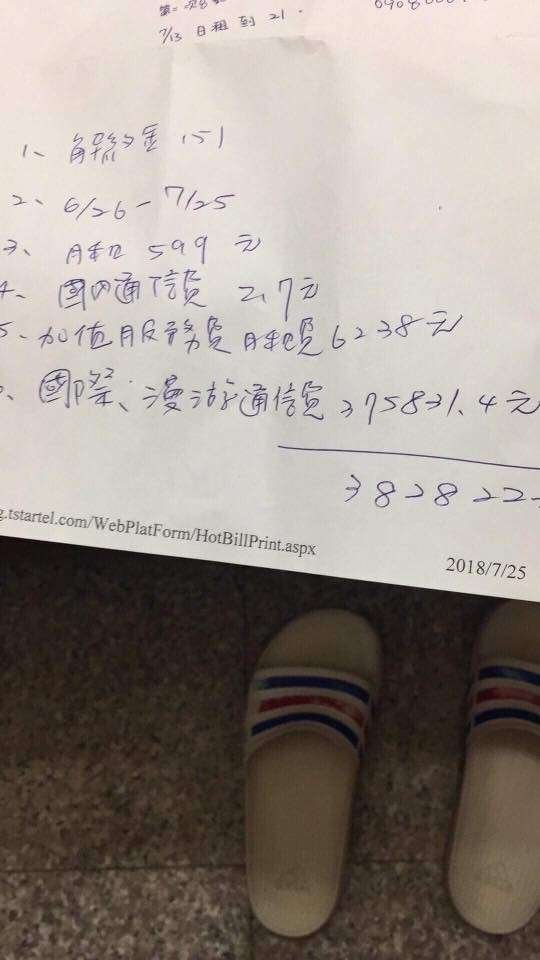 7/13 日租到 21.
1、解約金 151
2、6/26-7/25
3、月租 599 元
4、國內通信費 2.7元
5、加值服務費月租費 6238元
、國際、漫游通信費 375831.4元
382822
.tstartel.com/WebPlatForm/HotBillPrint.aspx
2018/7/25